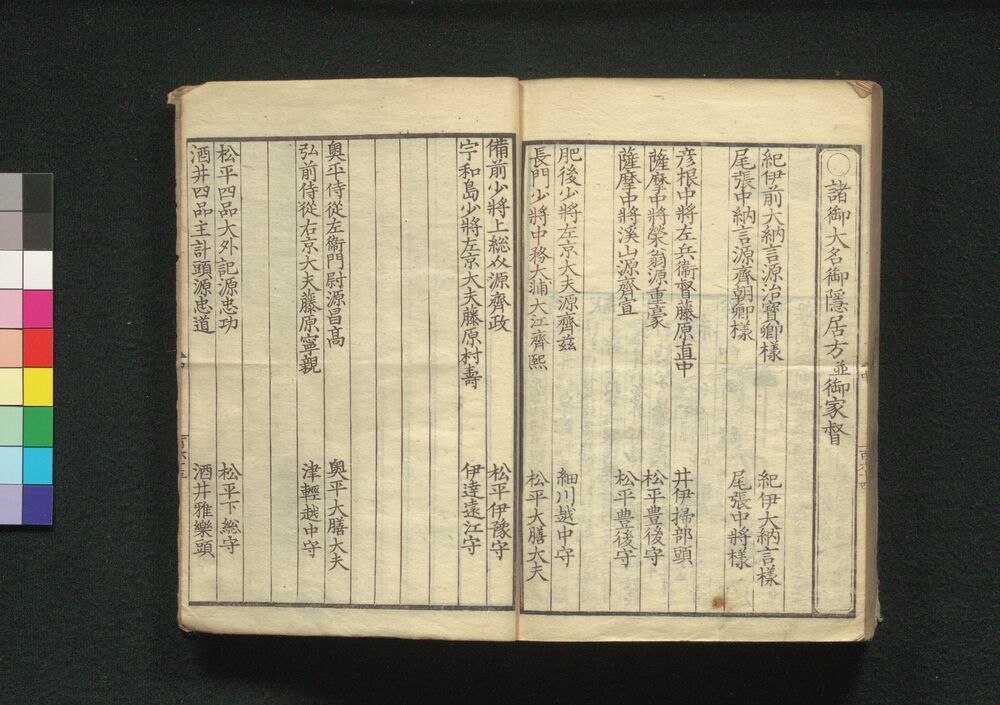 ○諸御大名御隠居方並御家督
紀伊前大納言源治寳卿様　紀伊大納言様
尾張中納言源齊朝卿様　尾張中将様
彦根中将左兵衞督藤原直中　井伊掃部頭
薩摩中将榮翁源重豪　松平豊後守
薩摩中将溪山源齊宣　松平豊後守
肥後少将左京大夫源齊茲　細川越中守
長門少将中務大輔大江齊熙　松平大膳大夫
備前少将上総介源齊政　松平伊豫守
宇和島少将左京大夫藤原村壽　伊達遠江守
奥平侍従左衞門尉源昌高　奥平大膳大夫
弘前侍従右京大夫藤原寧親　津輕越中守
松平四品大外記源忠功　松平下総守
酒井四品主計頭源忠道　酒井雅樂頭